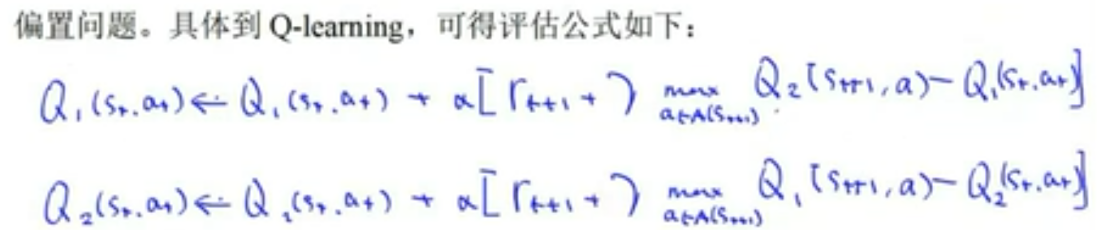 偏置问题。具体到 Q-learning，可得评估公式如下：
Q₁(sₜ.aₜ) ← Q₁(sₜ.aₜ) + α[rₜ₊₁ + γ max_{a∈A(sₜ₊₁)} Q₂(sₜ₊₁, a) − Q₁(sₜ.aₜ)]
Q₂(sₜ.aₜ) ← Q₂(sₜ.aₜ) + α[rₜ₊₁ + γ max_{a∈A(sₜ₊₁)} Q₁(sₜ₊₁, a) − Q₂(sₜ.aₜ)]